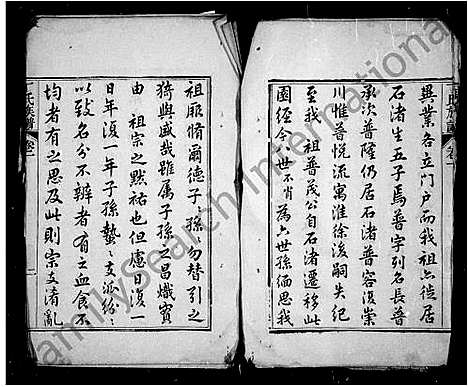 異業各立門户而我祖亦徙居
石渚生五子焉普字列名長普
承次普隆仍居石渚普容復崇
川惟普悦流寓淮徐後嗣失紀
至我祖普茂公自石渚遷移此
國經今八世不肖為六世孫緬思我
祖厥脩爾德子〻孫〻勿替引之
猗與盛哉雖属子孫之昌熾實
由祖宗之默祐也但慮日復一
日年復一年子孫蟄〻支派紛〻
以致名分不辨者有之血食不
均者有之思及此則宗支淆亂
氏族譜
卷一
二
FamilySearch International